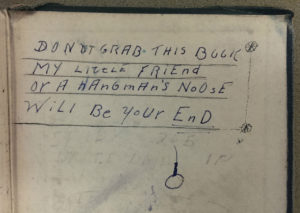 DO NOT GRAB THIS BOOK
MY LiTTLE FRiEnd
or A HAnGmAn's NoOsE
WiLL Be YoUr EnD